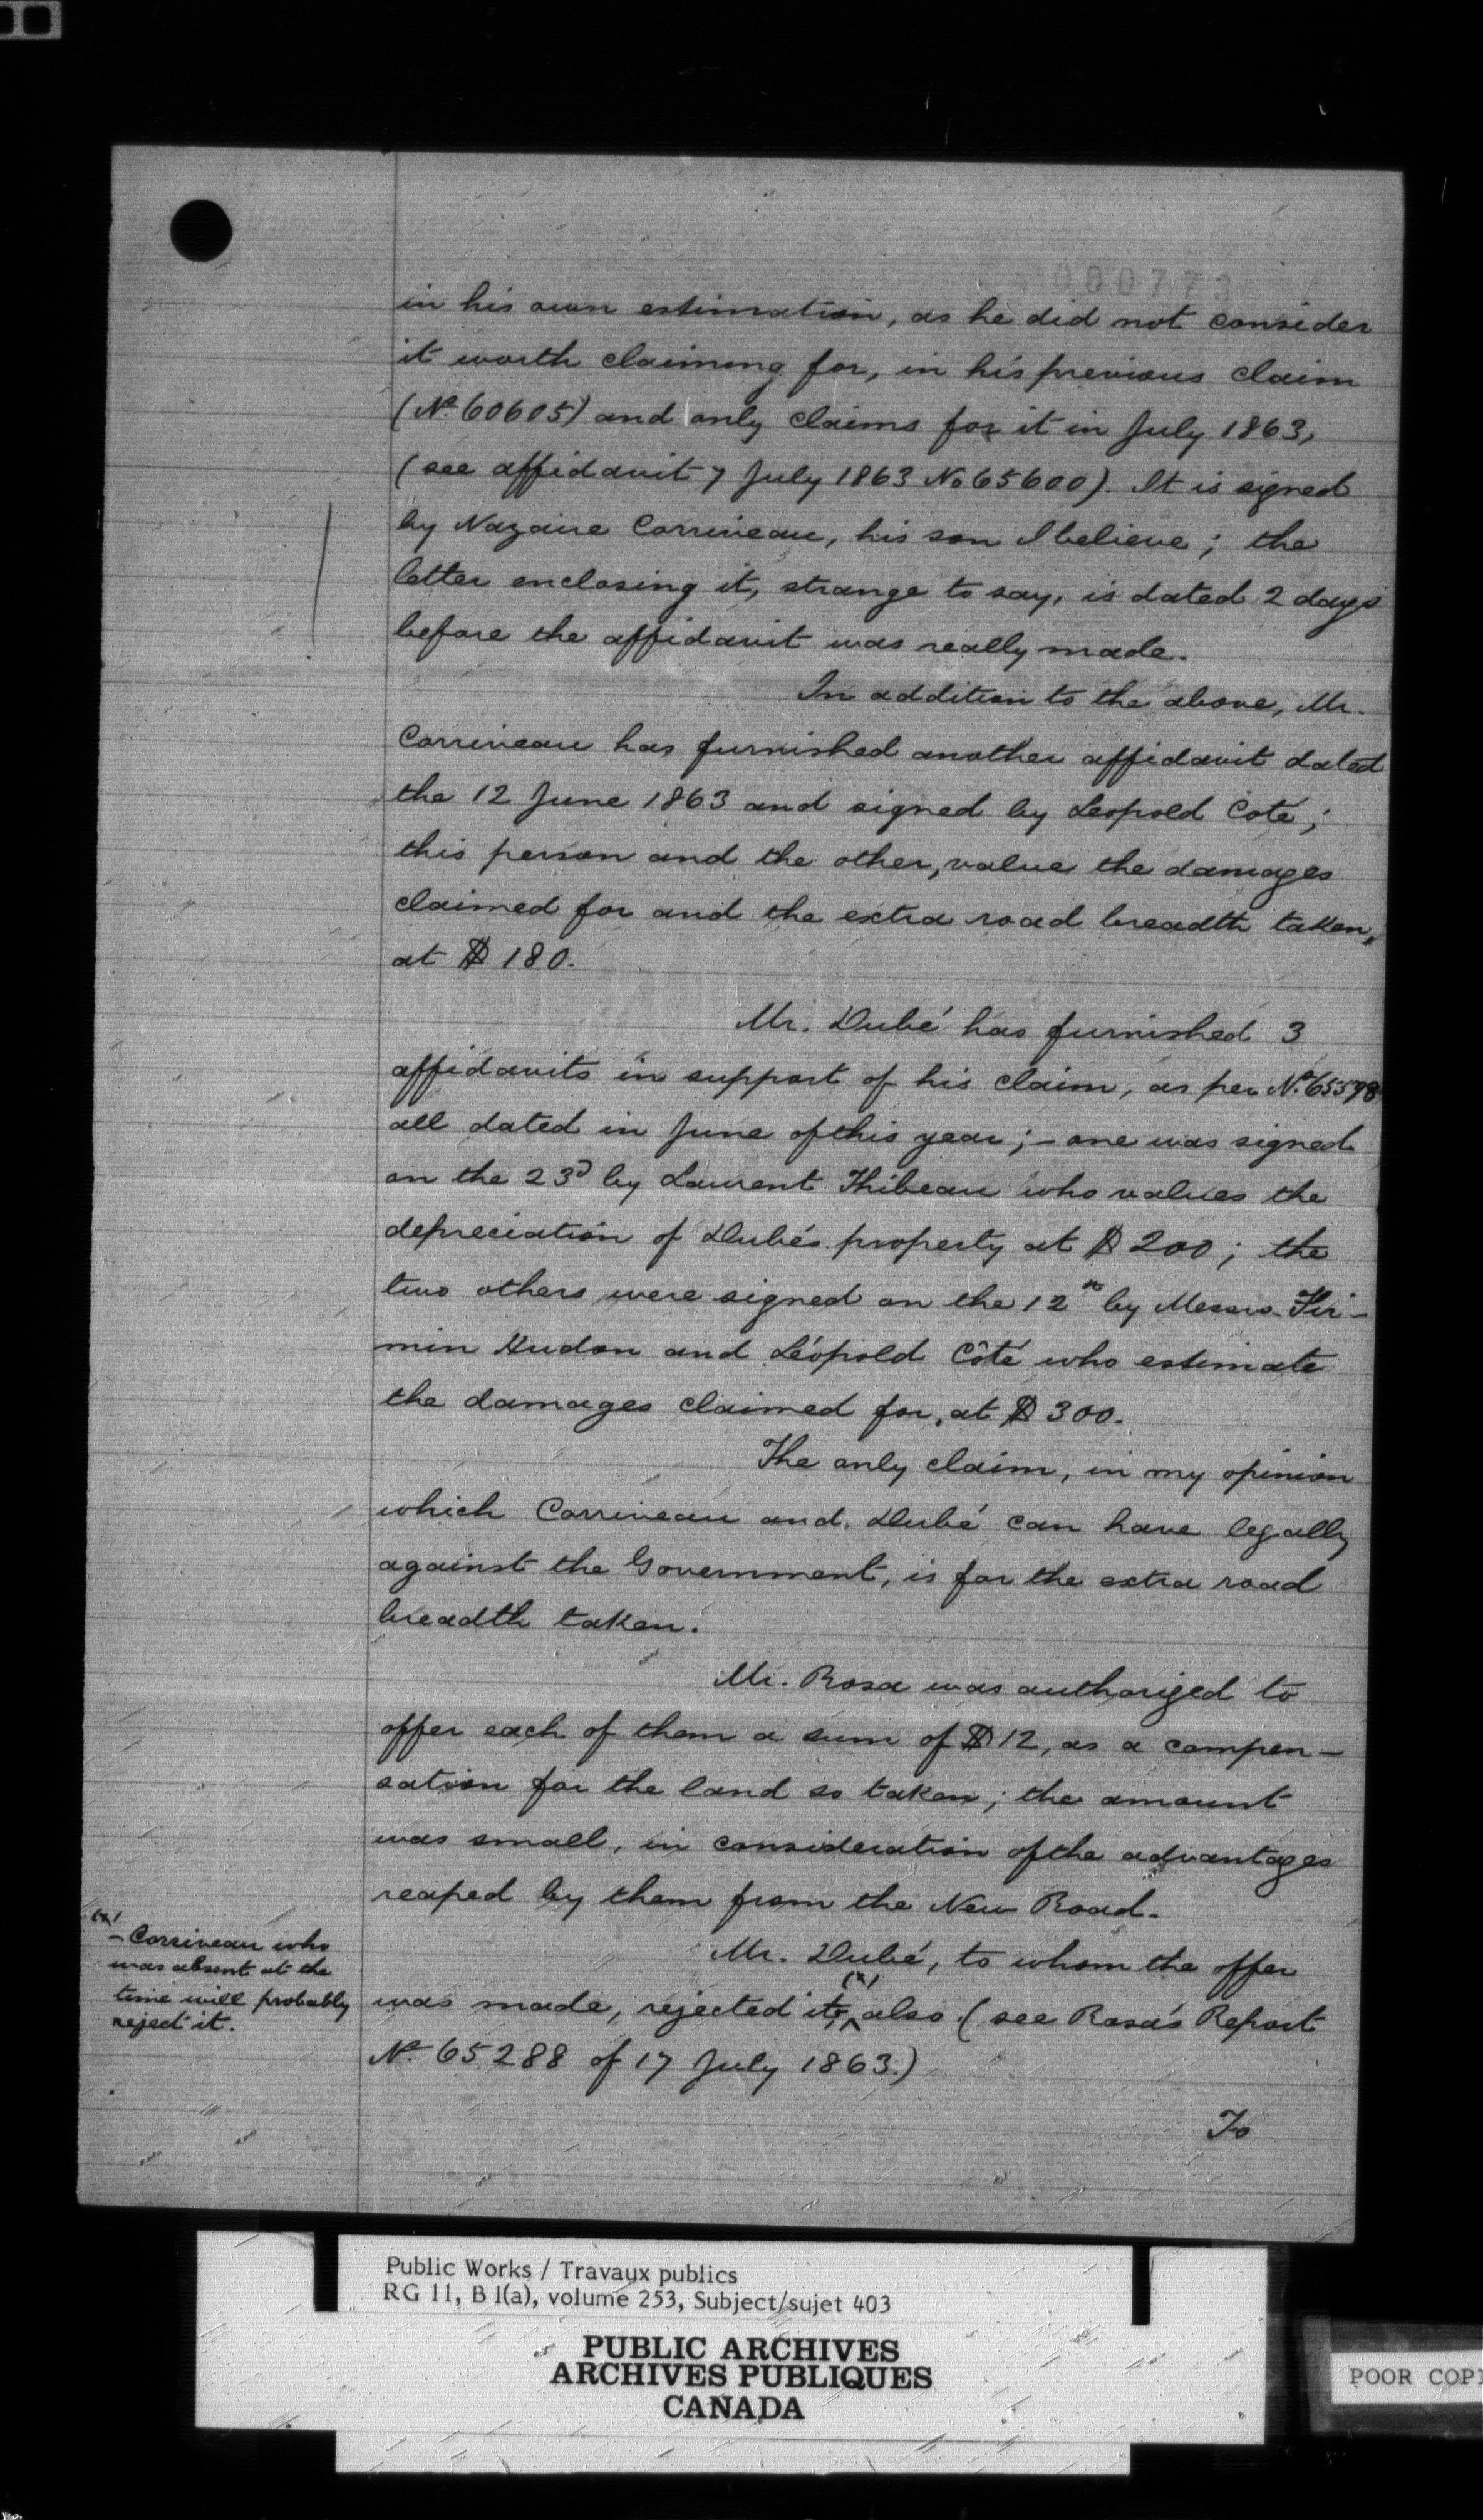 000773
in his own estimation, as he did not consider
it worth claiming for, in his previous claim
(No. 60605) and only claims for it in July 1863,
(see affidavit 7 July 1863 No 65600). It is signed
by Nazaire Corriveau, his son I believe; the
letter enclosing it, strange to say, is dated 2 days
before the affidavit was really made.
In addition to the above, Mr.
Corriveau has furnished another affidavit dated
the 12 June 1863 and signed by Leopold Coté;
this person and the other, value the damages
claimed for and the extra road breadth taken,
at $180.
Mr. Dubé has furnished 3
affidavits in support of his claim, as per No. 65598
all dated in June of this year; - one was signed
on the 23d by Laurent Thibeau who values the
depreciation of Dubé's property at $200; the
two others were signed on the 12th by Messrs. Fir-
min Hudon and Léopold Côté who estimate
the damages claimed for, at $300.
The only claim, in my opinion
which Corriveau and Dubé can have legally
against the Government, is for the extra road
breadth taken.
Mr. Rosa was authorized to
offer each of them a sum of $12, as a compen-
sation for the land so taken; the amount
was small, in consideration of the advantages
reaped by them from the New Road.
Mr. Dubé, to whom the offer
was made, rejected it; (x) also (see Rosa's Report
No. 65288 of 17 July 1863.)
To
(x)
- Corriveau who
was absent at the
time will probably
reject it.
Public Works / Travaux publics
RG 11, B 1(a), volume 253, Subject/sujet 403
PUBLIC ARCHIVES
ARCHIVES PUBLIQUES
CANADA
POOR COPY